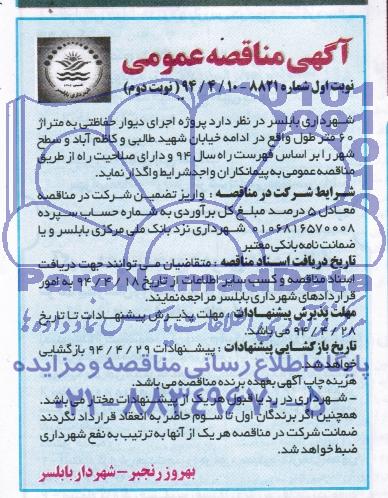 آگهی مناقصه عمومی
نوبت اول شماره ۸۸۲۱ - ۹۴/۴/۱۰ ( نوبت دوم )
شهرداری بابلسر در نظر دارد پروژه اجرای دیوار حفاظتی به متراژ
۶۰ متر طول واقع در ادامه خیابان شهید طالبی و کاظم آباد و سطح
شهر را بر اساس فهرست راه سال ۹۴ و دارای صلاحیت راه از طریق
مناقصه عمومی به پیمانکاران واجد شرایط واگذار نماید.
شرایط شرکت در مناقصه : واریز تضمین شرکت در مناقصه
معادل ۵ درصد مبلغ کل برآوردی به شماره حساب سپرده
۰۱۰۶۸۱۶۵۷۰۰۰۸ شهرداری نزد بانک ملی مرکزی بابلسر و یا
ضمانت نامه بانکی معتبر
تاریخ دریافت اسناد مناقصه : متقاضیان می توانند جهت دریافت
اسناد مناقصه و کسب سایر اطلاعات از تاریخ ۹۴/۴/۱۸ به امور
قراردادهای شهرداری بابلسر مراجعه نمایند.
مهلت پذیرش پیشنهادات : مهلت پذیرش پیشنهادات تا تاریخ
۹۴/۴/۲۸ می باشد.
تاریخ بازگشایی پیشنهادات : پیشنهادات ۹۴/۴/۲۹ بازگشایی
خواهد شد.
هزینه چاپ آگهی بعهده برنده مناقصه می باشد.
- شهرداری در رد یا قبول هر یک از پیشنهادات مختار می باشد.
همچنین اگر برندگان اول تا سوم حاضر به انعقاد قرارداد نگردند
ضمانت شرکت در مناقصه هر یک از آنها به ترتیب به نفع شهرداری
ضبط خواهد شد.
بهروز رنجبر - شهردار بابلسر
ParsNamadData
پایگاه اطلاع رسانی مناقصه و مزایده